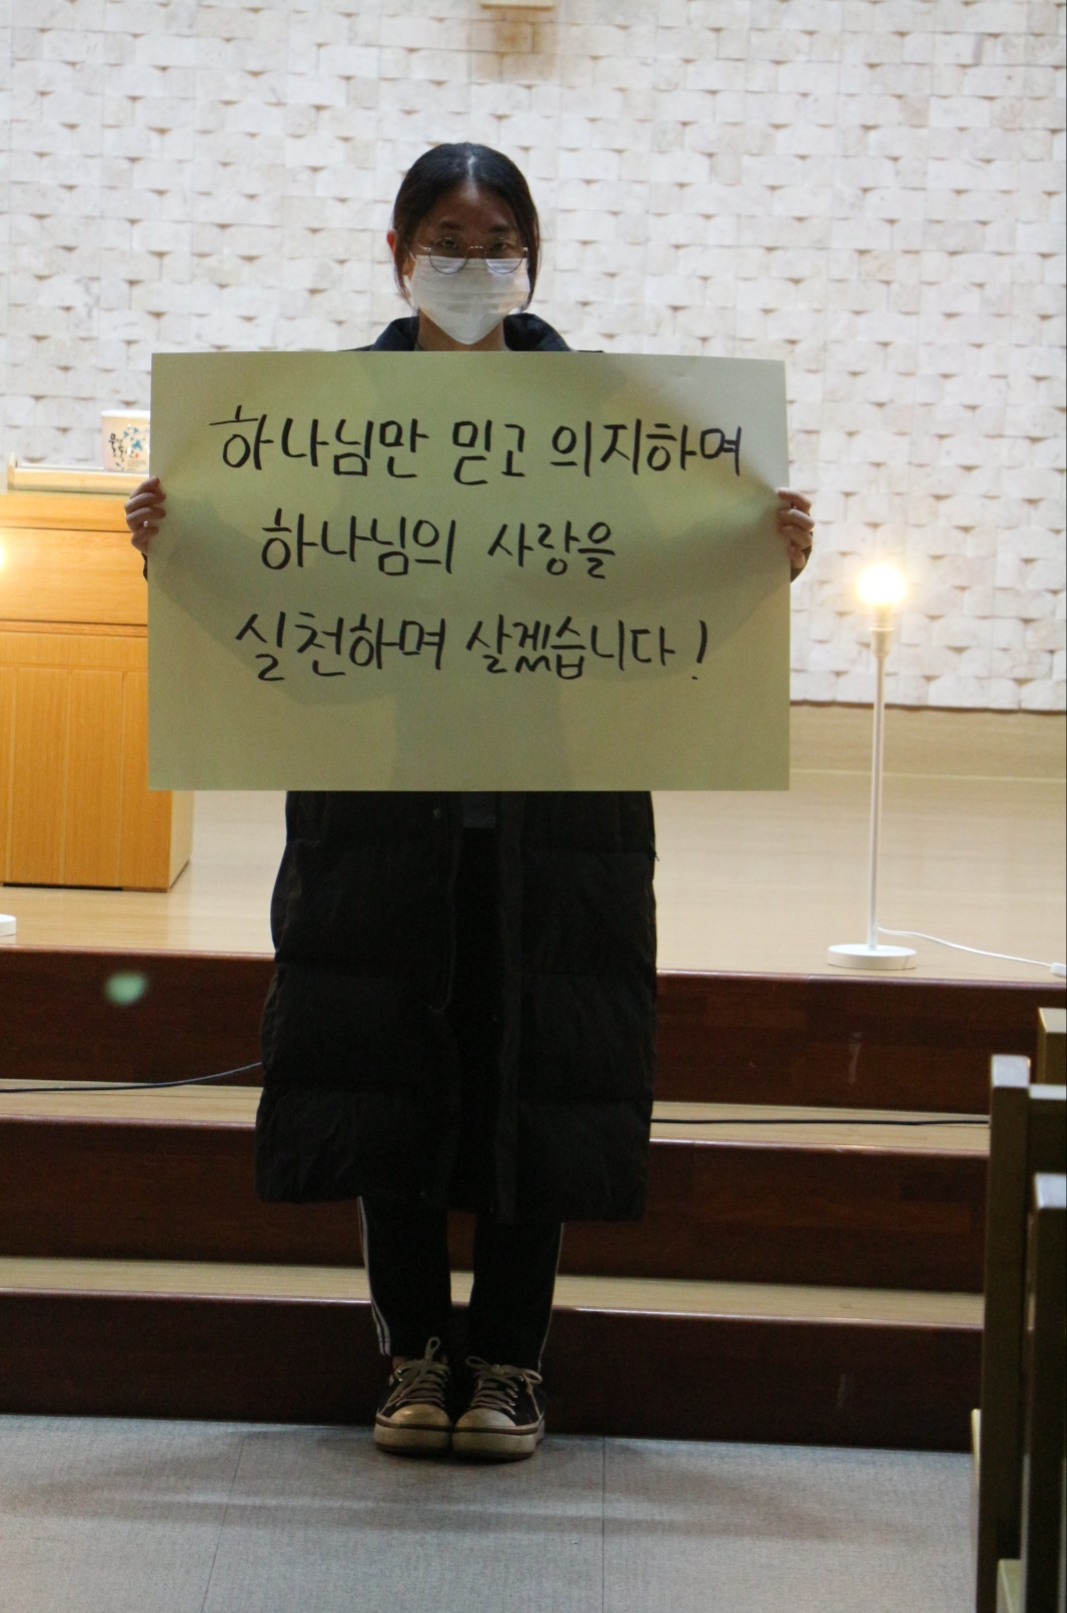 하나님만 믿고 의지하며
하나님의 사랑을
실천하며 살겠습니다!